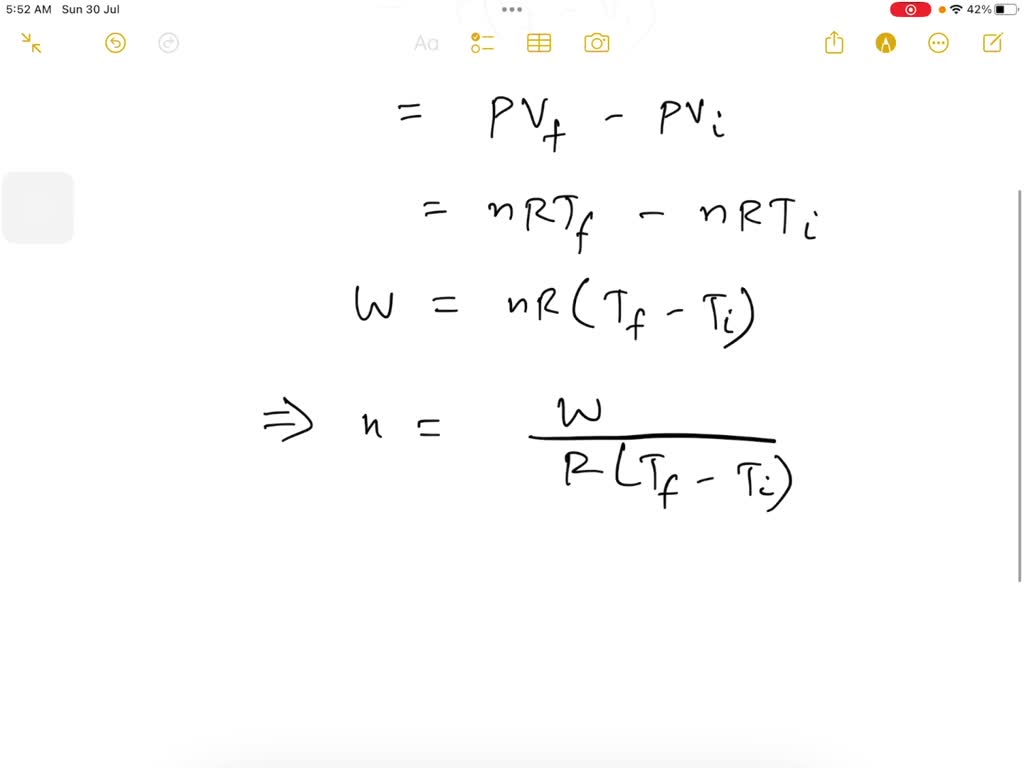 5:52 AM Sun 30 Jul 42%
Aa
= PV_f - PV_i
= nRT_f - nRT_i
W = nR(T_f - T_i)
⇒ n = W / R(T_f - T_i)